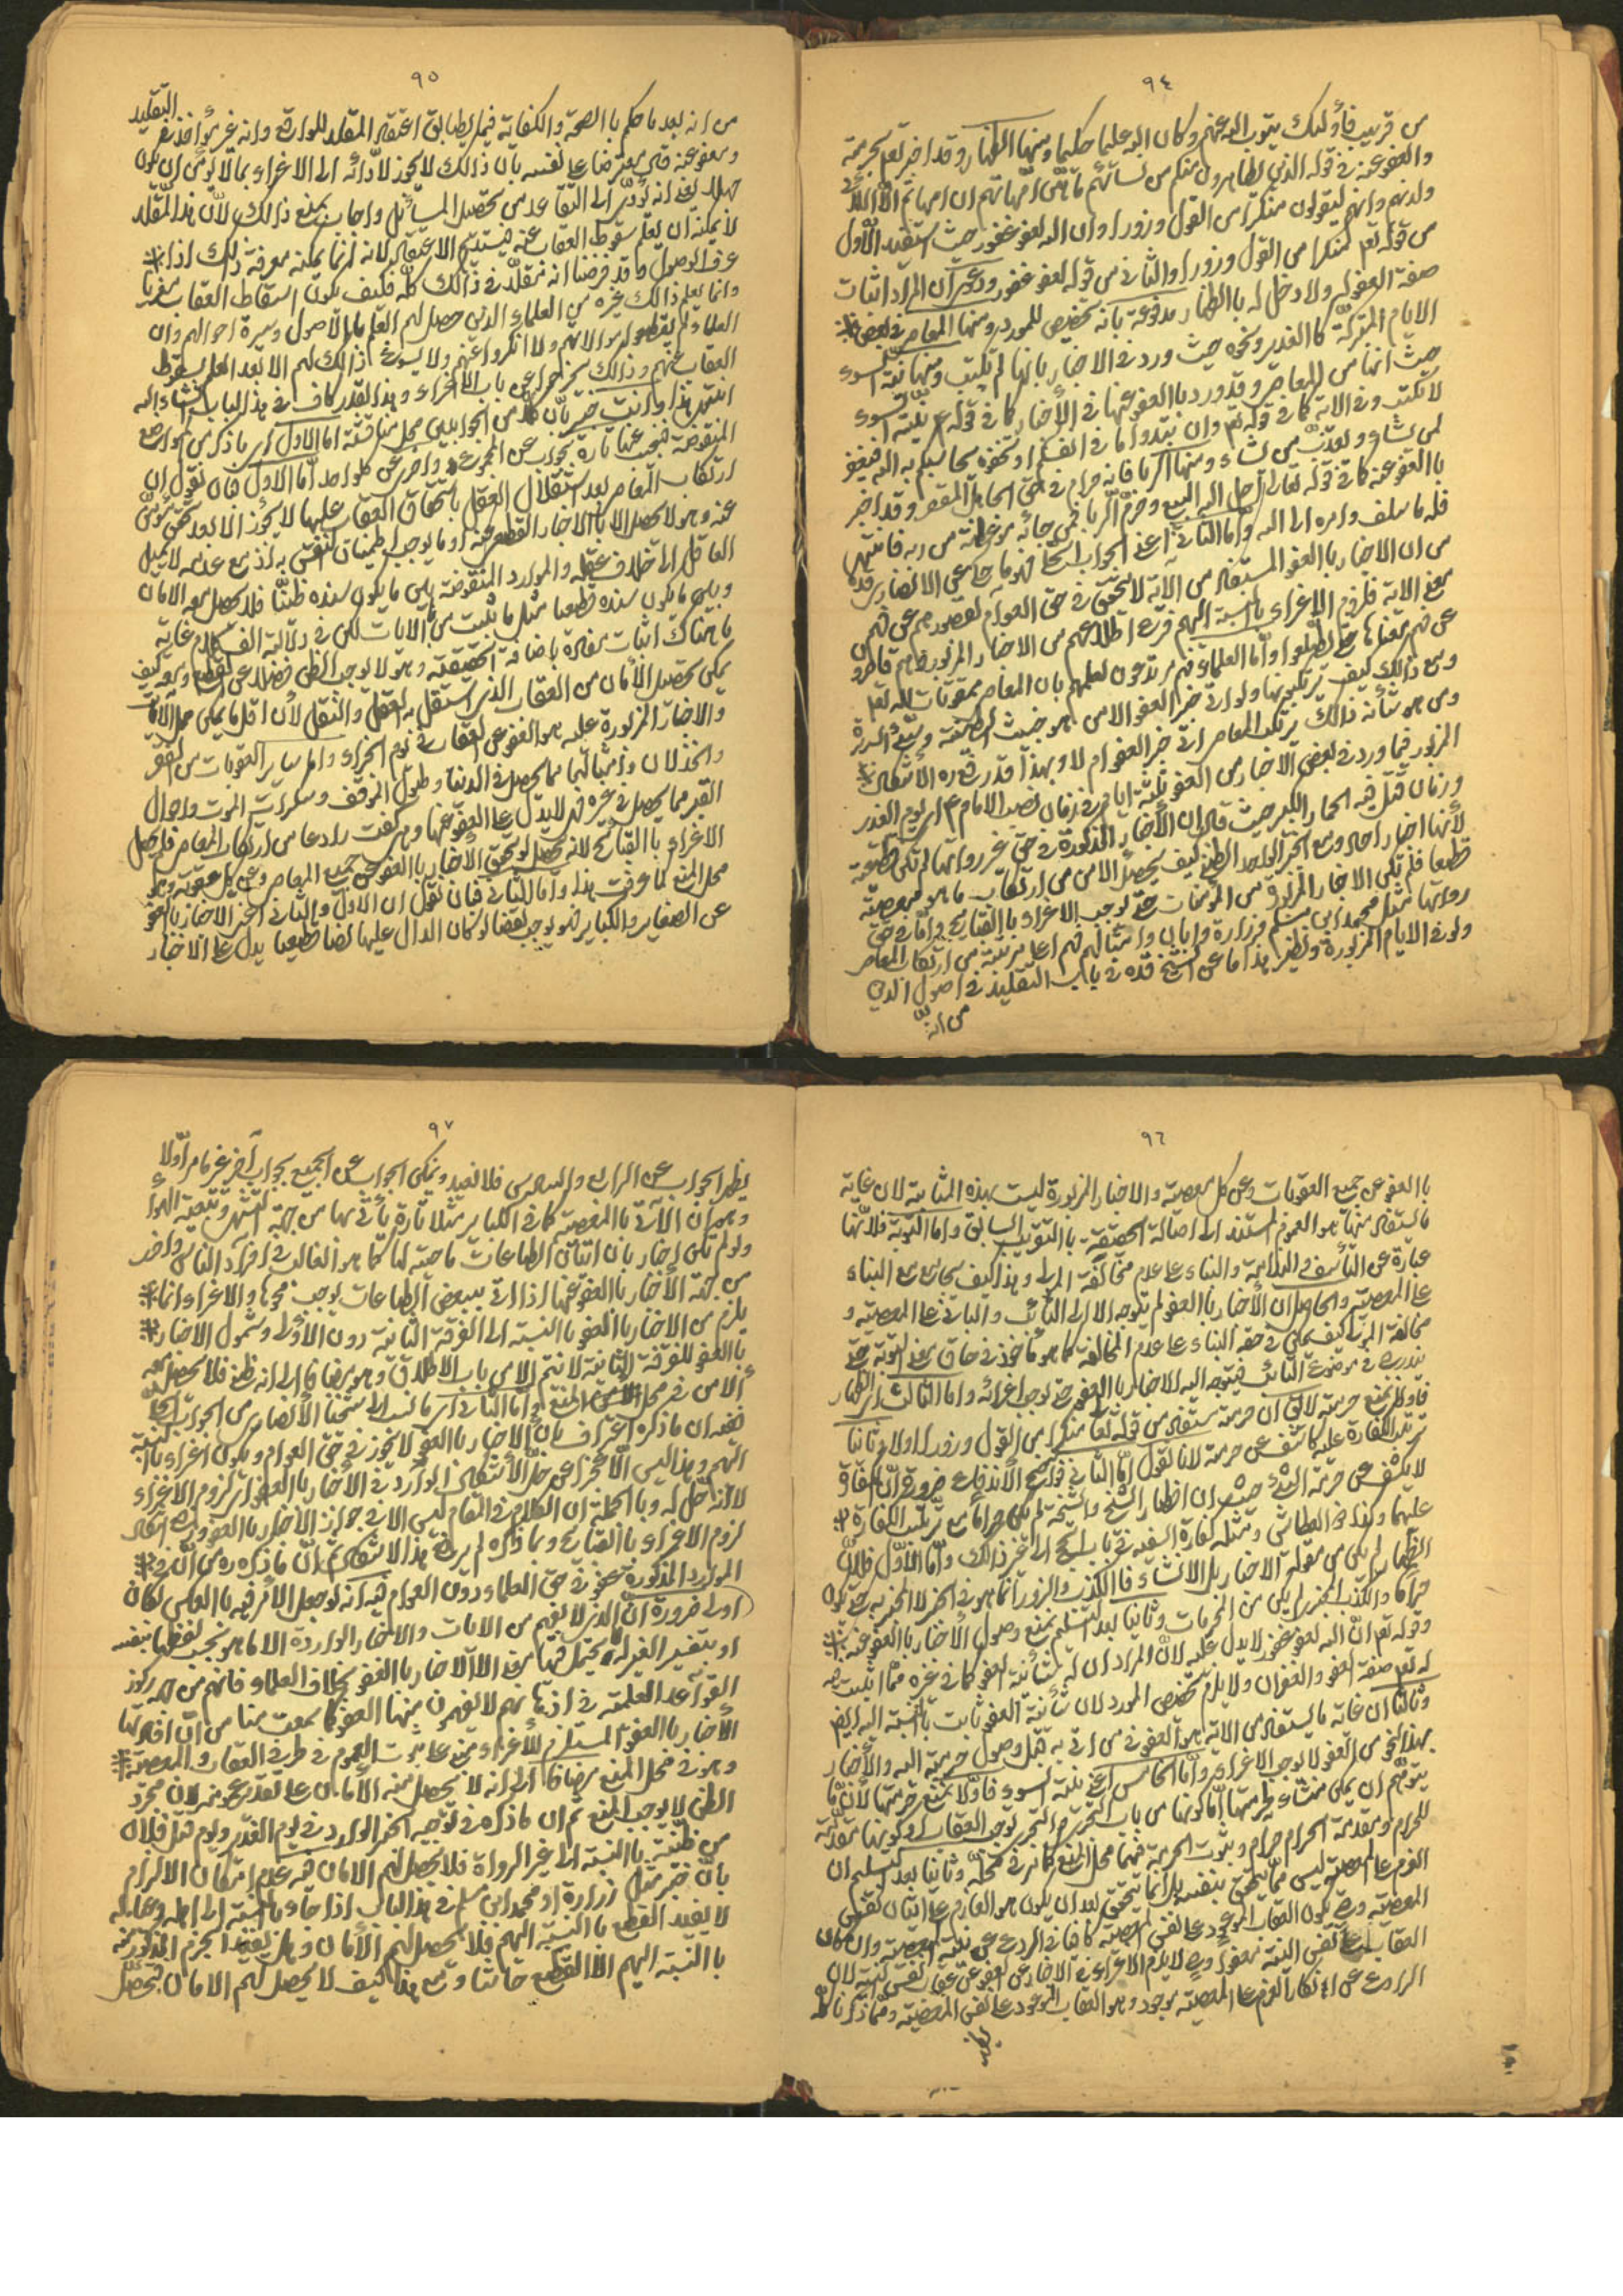 ٩٤
من قريب فأولئك يتوب الله عنهم وكان الله عليما حكيما ومنها الظهار وقد اخبر تعم بحرمته
والعفو عنه في قوله الذين يظاهرون منكم من نسائهم ما هن امهاتهم ان امهاتهم الا اللائي
ولدنهم وانهم ليقولون منكرا من القول وزورا وان الله لعفو غفور حيث استفيد الاول
من قوله تعم منكرا من القول وزورا والثاني من قوله لعفو غفور ودعوى ان المراد اثبات
صفة العفو له ولا دخل له باالظهار مدفوعة بانه تخصيص للمورد ومنها المعاصي في بعض
الايام المتبركة كالغدير ونحوه حيث ورد في الاخبار بانها لم تكتب ومنها نية السوء
حيث انها من المعاصي وقد ورد باالعفو عنها في الأخبار كما في قوله ع نية السوء
لا تكتب وفي الاية كما في قوله تعم وان تبدوا ما في انفسكم او تخفوه يحاسبكم به الله فيغفر
لمن يشاء ويعذب من يشاء ومنها الربا فانه حرام في حق الجاهل المقصر وقد اخبر
باالعفو عنه كما في قوله تعالى احل الله البيع وحرم الربا فمن جائه موعظة من ربه فانتهى
فله ما سلف وامره الى الله واما الثاني اعني الجواب الحلي فهو ما حكي عن الانصاري قده
من ان الاخبار باالعفو المستفاد من الاية لا يتحقق في حق العوام لقصورهم عن فهم
معنى الاية فلزوم الاغراء باالنسبة اليهم فرع اطلاعهم من الاخبار المزبورة وهم قاصرون
عن فهم معناها حتى يطلعوا واما العلماء فهم مرتدعون لعلمهم بان المعاصي مبغوضات لله تعم
ومع ذلك كيف يرتكبونها ولو اتى خبر العفو الا من هو خبيث الطينة وسيء السريرة
ومن هو شأنه ذلك يرتكب المعاصي اتى خبر العفو ام لا وبهذا قد رفع ره الاشكال
المزبور فيما ورد في بعض الاخبار من العفو ثلثة ايام في زمان نصب الامام ع اي يوم الغدير
وزمان قتل فيه الحمار الكبير حيث قال ان الأخبار المذكورة في حق غير رواتها لم تكن قطعية
لأنها اخبار احاد ومع الخبر الواحد الظني كيف يحصل الامن من ارتكاب ما هو معصية
قطعا فلم تكن الاخبار المزبورة من المؤمنات حتى توجب الاغراء باالقبايح واما في حق
رواتها مثل محمد ابن مسلم وزرارة وابان وامثالهم فهم اعلى مرتبة من ارتكاب المعاصي
ولو في الايام المزبورة ونظير هذا ما عن الشيخ قده في باب التقليد في اصول الدين
من انه
٩٥
التقليد
من انه بعد ما حكم باالصحة والكفاية فيما يطابق اعتقاد المقلد للواقع وانه غير مؤاخذ في
ومعفو عنه قال معترضا على نفسه بان ذالك لا يجوز لادائه الى الاغراء بما لا يؤمن ان يكون
جهلا يعني انه يؤدي الى التقاعد من تحصيل المسائل واجاب بمنع ذالك لان هذا المقلد
لا يمكنه ان يعلم سقوط العقاب عنه فيستديم الاعتقاد لانه انما يمكنه معرفة ذلك اذا
عرف الاصول وقد فرضنا انه مقلد في ذالك كله فكيف يكون اسقاط العقاب مغريا
وانما يعلم ذالك غيره من العلماء الذين حصل لهم العلم باالاصول وسيرة احوالهم وان
العلماء لم يقطعوا موالاتهم ولا انكروا عنهم ولا يسوغ ذالك لهم الا بعد العلم بسقوط
العقاب عنهم وذالك يخرجه عن باب الاغراء وهذا القدر كاف في هذا الباب انشاء الله
انتهى هذا وانت خبير بان كلا من الجوابين محل مناقشة اما الاول اي ما ذكر من المواضع
المنقوضة فنجيب عنها تارة بجواب عن المجموع واخرى عن كل واحد اما الاول فبان نقول ان
ارتكاب المعاصي بعد استقلال العقل باستحقاق العقاب عليها لا يجوز الا بعد تحقق مؤمن
عنه وهو لا يحصل الا باالاخبار القطعي عنه او ما يوجب اطمينان النفس به اذ مع عدمه لا يميل
العاقل الى خلاف عقله والموارد المنقوضة بين ما يكون سنده ظنيا فلا يحصل معه الامان
وبين ما يكون سنده قطعيا مثل ما يثبت من الايات لكن في دلالته الف كلام غاية
ما هناك اثبات مفاده باضافة الحقيقة وهو لا يوجب الظن فضلا عن القطع ومعه كيف
يمكن تحصيل الأمان من العقاب الذي استقل به العقل والنقل لأن اقل ما يمكن حمل الايات
والاخبار المزبورة عليه هو العفو عن العقاب في يوم الجزاء واما ساير العقوبات من الفقر
والخذلان وامثالهما مما يحصل في الدنيا وطول الموقف وسكرات الموت واحوال
القبر مما يحصل في غيره فهو لا يدل على العفو عنها وهي كفت رادعا من ارتكاب المعاصي فلم يحصل
الاغراء باالقبايح لانه يحصل لو تحقق الأخبار باالعفو عن جميع المعاصي وعن كل عقوبة وهو
محل المنع لما عرفت هذا واما الثاني فبان نقول ان الاول والثاني اعني الاخبار باالعفو
عن الصغاير والكباير فهو يوجب نقضا لو كان الدال عليها نصا قطعيا يدل على الاخبار
٩٦
باالعفو عن جميع العقوبات وعن كل معصية والاخبار المزبورة ليست بهذه المثابة لان غاية
ما يستفاد منها هو العموم المستند الى اصالة الحقيقة باالتقريب السابق واما التوبة فلانها
عبارة عن التأسف والندامة والبناء على عدم مخالفة المولى وهذا كيف يجامع مع البناء
على المعصية والحاصل ان الأخبار باالعفو لم يتوجه الا الى التائب والباني على المعصية و
مخالفة الرب كيف يمكن في حقه البناء على عدم المخالفة كما هو مأخوذ في حاق معنى التوبة حتى
يندرج في موضوع التائب فيتوجه اليه الاخبار باالعفو حتى يوجب اغرائه واما الثالث اي الظهار
فاولا نمنع حرمته لا يق ان حرمته يستفاد من قوله تعا منكرا من القول وزورا اولا وثانيا
ترتب الكفارة عليه كاشف عن حرمته لانا نقول اما الثاني فواضح الاندفاع ضرورة ان الكفارة
لا يكشف عن حرمة الشيء حيث ان افطار الشيخ والشيخة لم يكن حراما مع ترتب الكفارة
عليهما وكذا ذو العطاش ومثله كفارة الصيد في باب الحج الى غير ذالك واما الاول فلان
الظهار لم يكن من مقولة الاخبار بل الانشاء فاالكذب والزور انما هو في الخبر لا المخبر به حتى يكون
حراما والكذب المخبر لم يكن من المحرمات وثانيا بعد التسليم نمنع وصول الأخبار باالعفو عنه
وقوله تعم ان الله لعفو غفور لا يدل عليه لان المراد ان له شأنية العفو كما في غيره مما اثبت فيه
له تعم صفة العفو والغفران ولا يلزم تخصيص المورد لان شأنية العفو ثابت باالنسبة اليه ايضا
وثالثا ان غاية ما يستفاد من الاية هو العفو من من اتى به قبل وصول حرمته اليه والأخبار
بهذا النحو من العفو لا يوجب الاغراء واما الخامس اعني نية السوء فاولا نمنع حرمتها لأن ما
يتوهم ان يكون منشاء لحرمتها اما كونها من باب التجري والتجري يوجب العقاب او كونها مقدمة
للحرام ومقدمة الحرام حرام وثبوت الحرمة فيهما محل المنع كما تقرر في محله وثانيا بعد تسليم ان
العزم على المعصية ليس مما يتحقق بنفسه بل انما يتحقق بعد ان يكون هو العازم على اتيان نفس
المعصية وح يكون العقاب الموعود على نفس المعصية كافيا في الردع عن نية المعصية وان كان
العقاب على نفس النية معفوا وح لا يلزم الاغراء في الاخبار عن العفو عن عقاب نفس النية لان
الرادع عن ارتكاب العزم على المعصية موجود وهو العقاب الموعود على نفس المعصية ومما ذكرنا كله
يظهر
٩٧
يظهر الجواب عن الرابع والسادس فلا نعيد ويمكن الجواب عن الجميع بجواب آخر غير ما مر اولا
وهو ان الآتي باالمعصية كما في الكباير مثلا تارة يأتي بها من جهة التشهي وتبعية الهوى
ولو لم يكن اخبار بان اتيان الطاعات ماحية لها كما هو الغالب في افراد الناس واخرى
من جهة الأخبار باالعفو عنها اذا اتى ببعض الطاعات يوجب محوها والاغراء انما
يلزم من الاخبار باالعفو باالنسبة الى الفرقة الثانية دون الأولى وشمول الاخبار
باالعفو للفرقة الثانية لا يتم الا من باب الاطلاق وهو مضافا الى انه ظني فلا يحصل معه
الامن في محل المنع واما الثاني اي ما نسب الى شيخنا الأنصاري من الجواب الحلي
ففيه ان ما ذكره اعتراف بان الاخبار باالعفو لا يجوز في حق العوام ويكون اغراء باالنسبة
اليهم وهذا ليس الا عجزا عن حل الأشكال الوارد في الأخبار باالعفو اي لزوم الاغراء
لا انه حل له وباالجملة ان الكلام في المقام ليس الا في جواز الأخبار باالعفو ورفع اشكال
لزوم الاغراء باالقبايح وما ذكره لم يرفع هذا الاشكال ثم ان ما ذكره من ان في
الموارد المذكورة عفو في حق العلماء دون العوام فيه انه لو جعل الأمر فيه باالعكس لكان
اولى ضرورة ان الذي لا يفهم من الايات والاخبار الواردة الا ما هو بحسب لفظها بنفسه
او بتفسير الغير له يحتمل فيها مرة الا الاخبار باالعفو بخلاف العلماء فانهم من جهة ركوز
القواعد العلمية في اذهانهم لا يفهمون منها العفو كما سمعت منا من ان افادتها
الأخبار باالعفو المستلزم للاغراء مبني على ثبوت العموم في طرفي العقاب والمعصية
وهو في محل المنع مضافا الى انه لا يحصل منه الأمان على تقدير عمومه لان مجرد
الظن لا يوجب المنع ثم ان ما ذكره في توجيه الخبر الوارد في يوم الغدير ويوم قتل فلان
من ظنيته باالنسبة الى غير الرواة فلا يحصل لهم الامان فيه عدم امكان الالتزام
بان خبر مثل زرارة او محمد ابن مسلم في هذا الباب اذا جاء باالنسبة الى اهله وعياله
لا يفيد القطع باالنسبة اليهم فلا يحصل لهم الأمان وهل يفيد الجزم المذكور منه
باالنسبة اليهم الا القطع خاتما ومع هذا كيف لا يحصل لهم الامان فتحصل